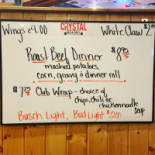 Wings $4.00
CRYSTAL
White Claw
Roast Beef Dinner
mashed potatoes,
corn, gravy & dinner roll
Club Wrap - choice of
chips, chili or
chicken noodle
soup
Busch Light, Bud Light